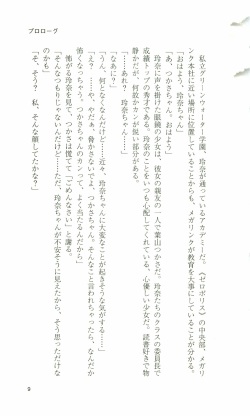 プロローグ
私立グリーンウォーター学園。玲奈が通っているアカデミーだ。《ゼロポリス》の中央部、メガリ
ンク本社に近い場所に位置していることからも、メガリンクが教育を大事にしていることが分かる。
「おはよう、玲奈ちゃん」
「あ、つかさちゃん。おはよう」
玲奈に声を掛けた眼鏡の少女は、彼女の親友の一人で葉山つかさだ。玲奈たちのクラスの委員長で
成績トップの秀才である。玲奈のことをいつも心配してくれている、心優しい少女だ。読書好きで物
静かだが、何故かカンが鋭い部分がある。
「……あれ？　玲奈ちゃん……」
「なあに？」
「うんん、何となくなんだけど……近々、玲奈ちゃんに大変なことが起きそうな気がする……」
「えっ？……や、やだぁ、脅かさないでよ、つかさちゃん。そんなこと言われちゃったら、なんだか
怖くなっちゃう。つかさちゃんのカンって、よく当たるんだから」
怖がる玲奈を見て、つかさは慌てて「ごめんなさい」と謝る。
「そんなつもりじゃないんだけど……ただ、玲奈ちゃんが不安そうに見えたから、そう思っただけな
のかも」
「そ、そう？　私、そんな顔してたかな？」
9